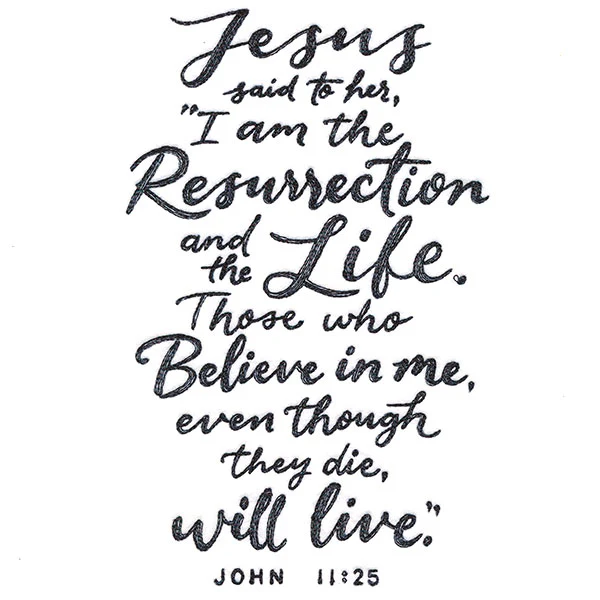 Jesus
said to her,
"I am the
Resurrection
and
the Life.
Those who
Believe in me,
even though
they die,
will live."
JOHN 11:25